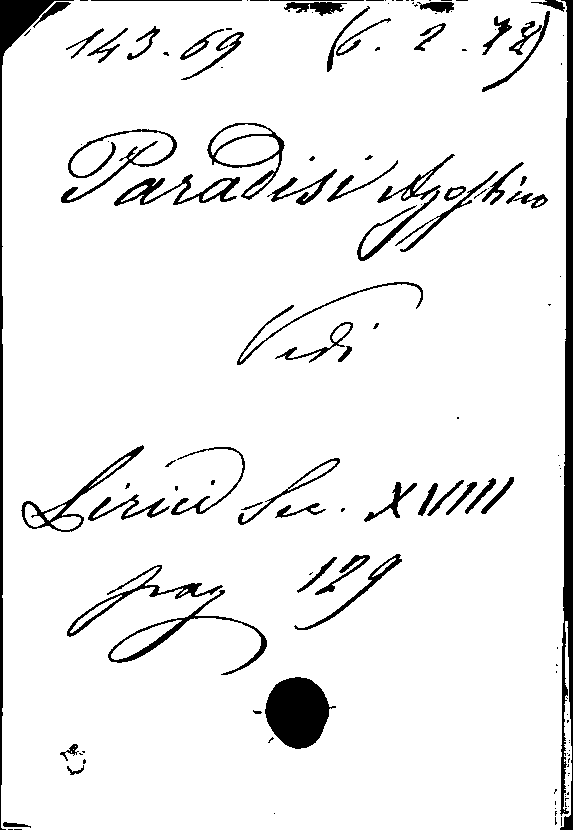 143.69 (6.2.78)
Paradisi Agostino
Vedi
Lirici Sec. XVIIII
pag 129